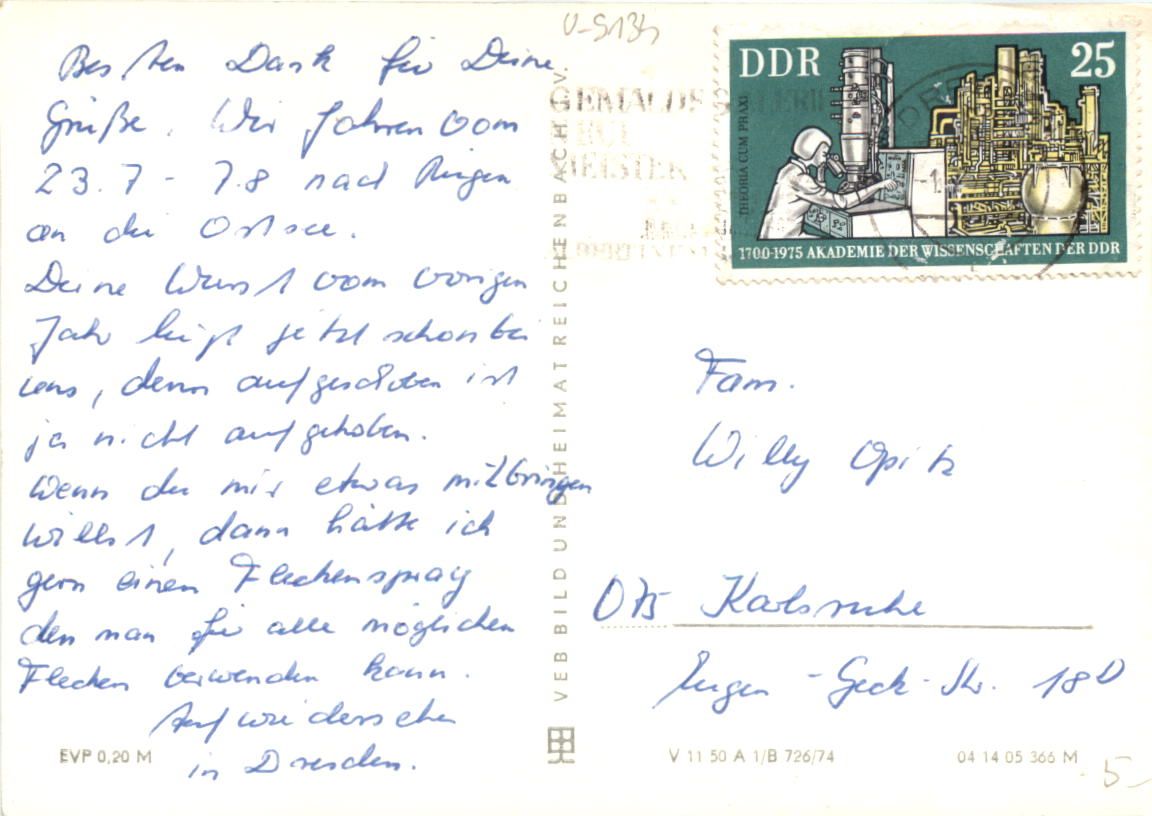 Besten Dank für Deine
Grüße. Wir fahren vom
23.7 - 7.8 nach Rügen
an die Ostsee.
Deine Wurst vom vorigen
Jahr liegt jetzt schon bei
uns, denn aufgeschoben ist
ja nicht aufgehoben.
Wenn du mir etwas mitbringen
willst, dann hätte ich
gern einen Fleckenspray
den man für alle möglichen
Flecken verwenden kann.
Auf wiedersehen
in Dresden.
EVP 0,20 M
VEB BILD UND HEIMAT REICHENBACH I. V.
U-5134
GEMÄLDEGALERIE
MEISTER
DDR
25
THEORIA CUM PRAXI
1700-1975 AKADEMIE DER WISSENSCHAFTEN DER DDR
Fam.
Willy Opitz
075 Karlsruhe
Eugen-Geck-Str. 18D
V 11 50 A 1/B 726/74
04 14 05 366 M
5-